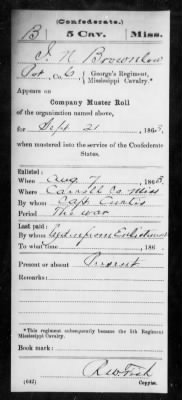 (Confederate.)
B 5 Cav. Miss.
I. N. Brownlow
Pvt., Co. C, George's Regiment, Mississippi Cavalry.*
Appears on
Company Muster Roll
of the organization named above,
for Sept 21, 1863,
when mustered into the service of the Confederate
States.
Enlisted:
When Aug 7, 1863.
Where Carroll Co Miss
By whom Capt Curtis
Period The war
Last paid:
By whom
To what time , 186 .
Present or absent Present
Remarks:
*This regiment subsequently became the 5th Regiment
Mississippi Cavalry.
Book mark:
(642) Copyist.